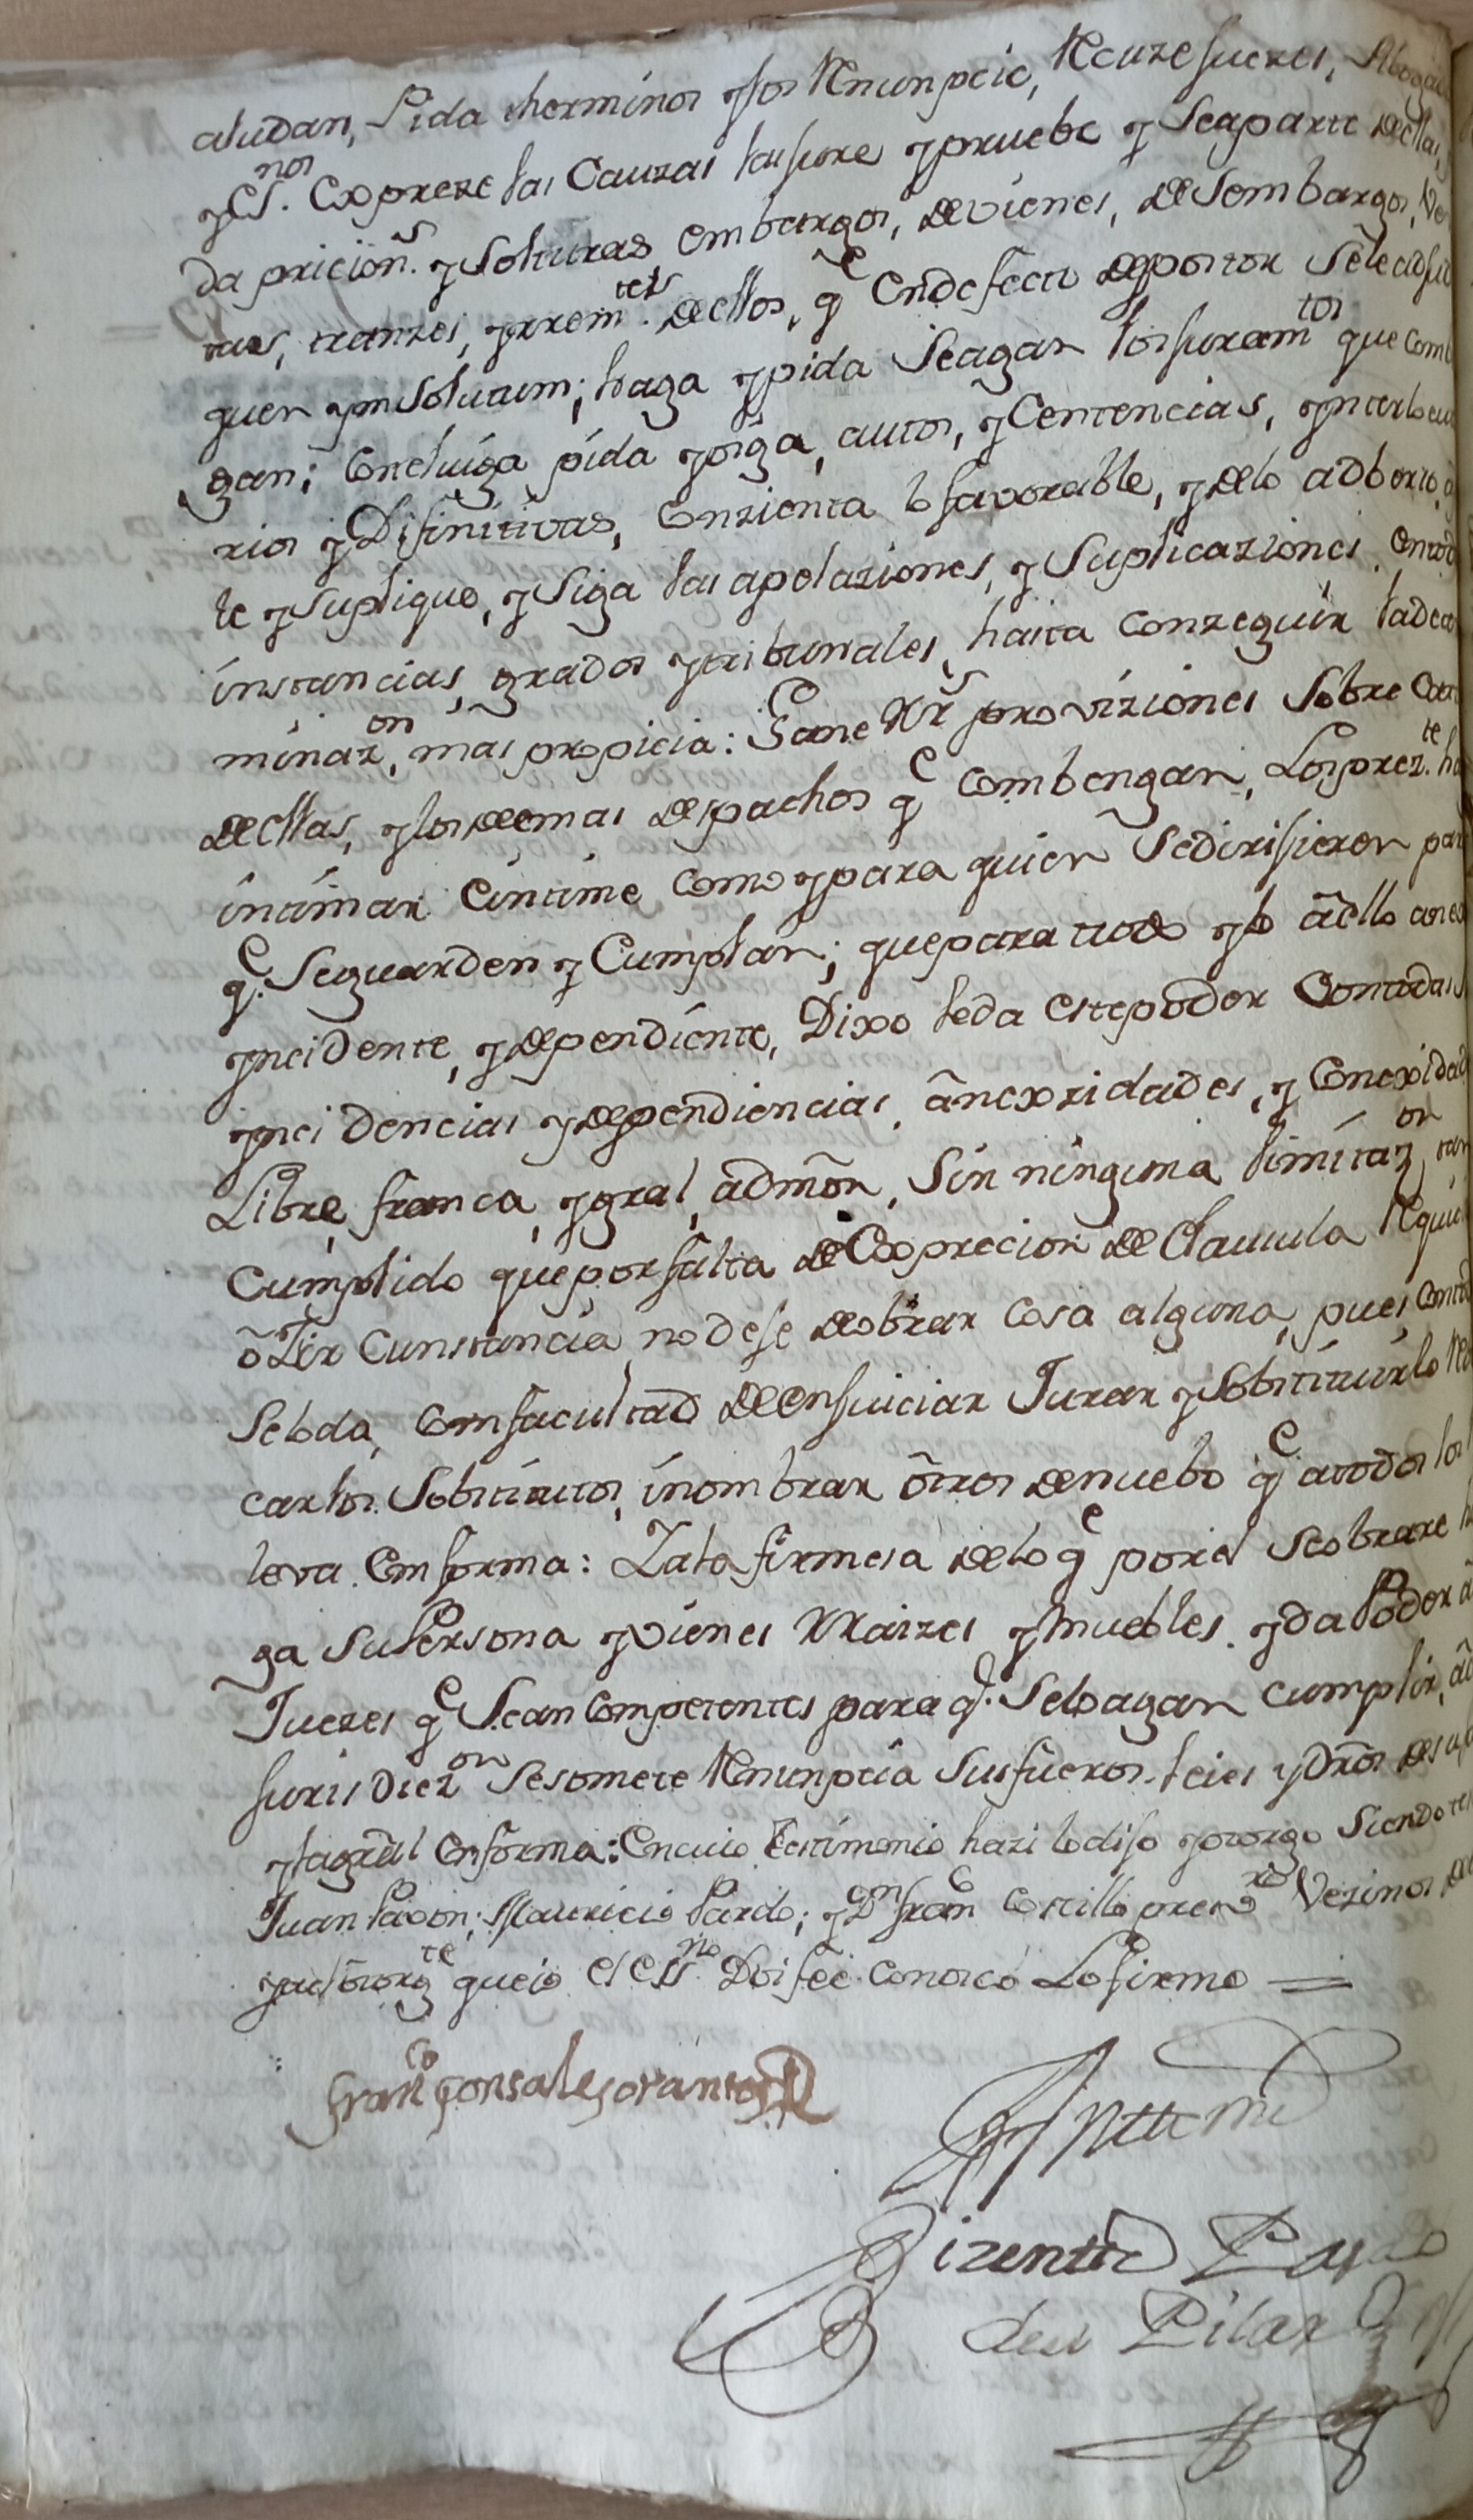 aludan, Pida therminos y los Renunpcie, Recuze Juezes, Abogad
y Es.nos Expreze las Cauzas las jure y pruebe y Seaparte dellas
da pricion.s y Solturas embargos, de vienes, desembargos, Ven
tas, tranzes, y rrem.tes dellos, q.e en defecto de postor Se le adju
quen yn Solutum; haga y pida Seagan los Juram.tos que comb
gan; Concluiga pida y oiga, autos, y Centencias, ynterlocu
rios y Difinitivas, Conzienta lo favorable, y delo adberso, a
le y Suplique, y Siga las apelaziones, y Suplicaziones. en tod
instancias, grados y tribunales, hasta conzeguir la deter
minaz.on, mas propicia: Gane R.s proviziones Sobre Cart
dellas, y los demas despachos q.e combengan, Los prez.te ha
intimar e intime como y para quien Se dirijieren par
q.e Se guarden y Cumplan; que para todo y lo a ello anex
yncidente, y dependiente, Dixo le da este poder Con todas
yncidencias y dependiencias, anexzidades, y Conexidad
Libre, franca, y gral, admon, Sin ninguna limitaz.on tan
Cumplido que por falta de Exprecion de Clausula Requi
o Zir Cunstancia no deje de obrar cosa alguna, pues, con tod
Se lo da, Com facultad de en juiciar Jurar y Sobstituirlo Rebo
car los Sobstitutos, i nombrar otros de nuebo q.e a todos los
leva. Em forma: Y a la firmesa de lo q.e por el Se obrare
ga Su Persona y vienes Rraizes y muebles. y da Poder a
Juezes q.e Sean Competentes para q.e Se lo agan cumplir, a cu
juris dicz.on Se somete Renunpcia Sus fueros leies y dros de su
y la gral en forma: En cuio testimonio hazi lo dijo y otorgo Siendo tes
Juan Pavon; Mauricio Pardo; y D.n Fran.co Costillo prez.es Vezinos de
y al otorg.te que io el Ess.no Doi fee conosco Lo firmo =
Fran.co gonsales orantes
Antte mi
Bizentte Pardo
del Pilar